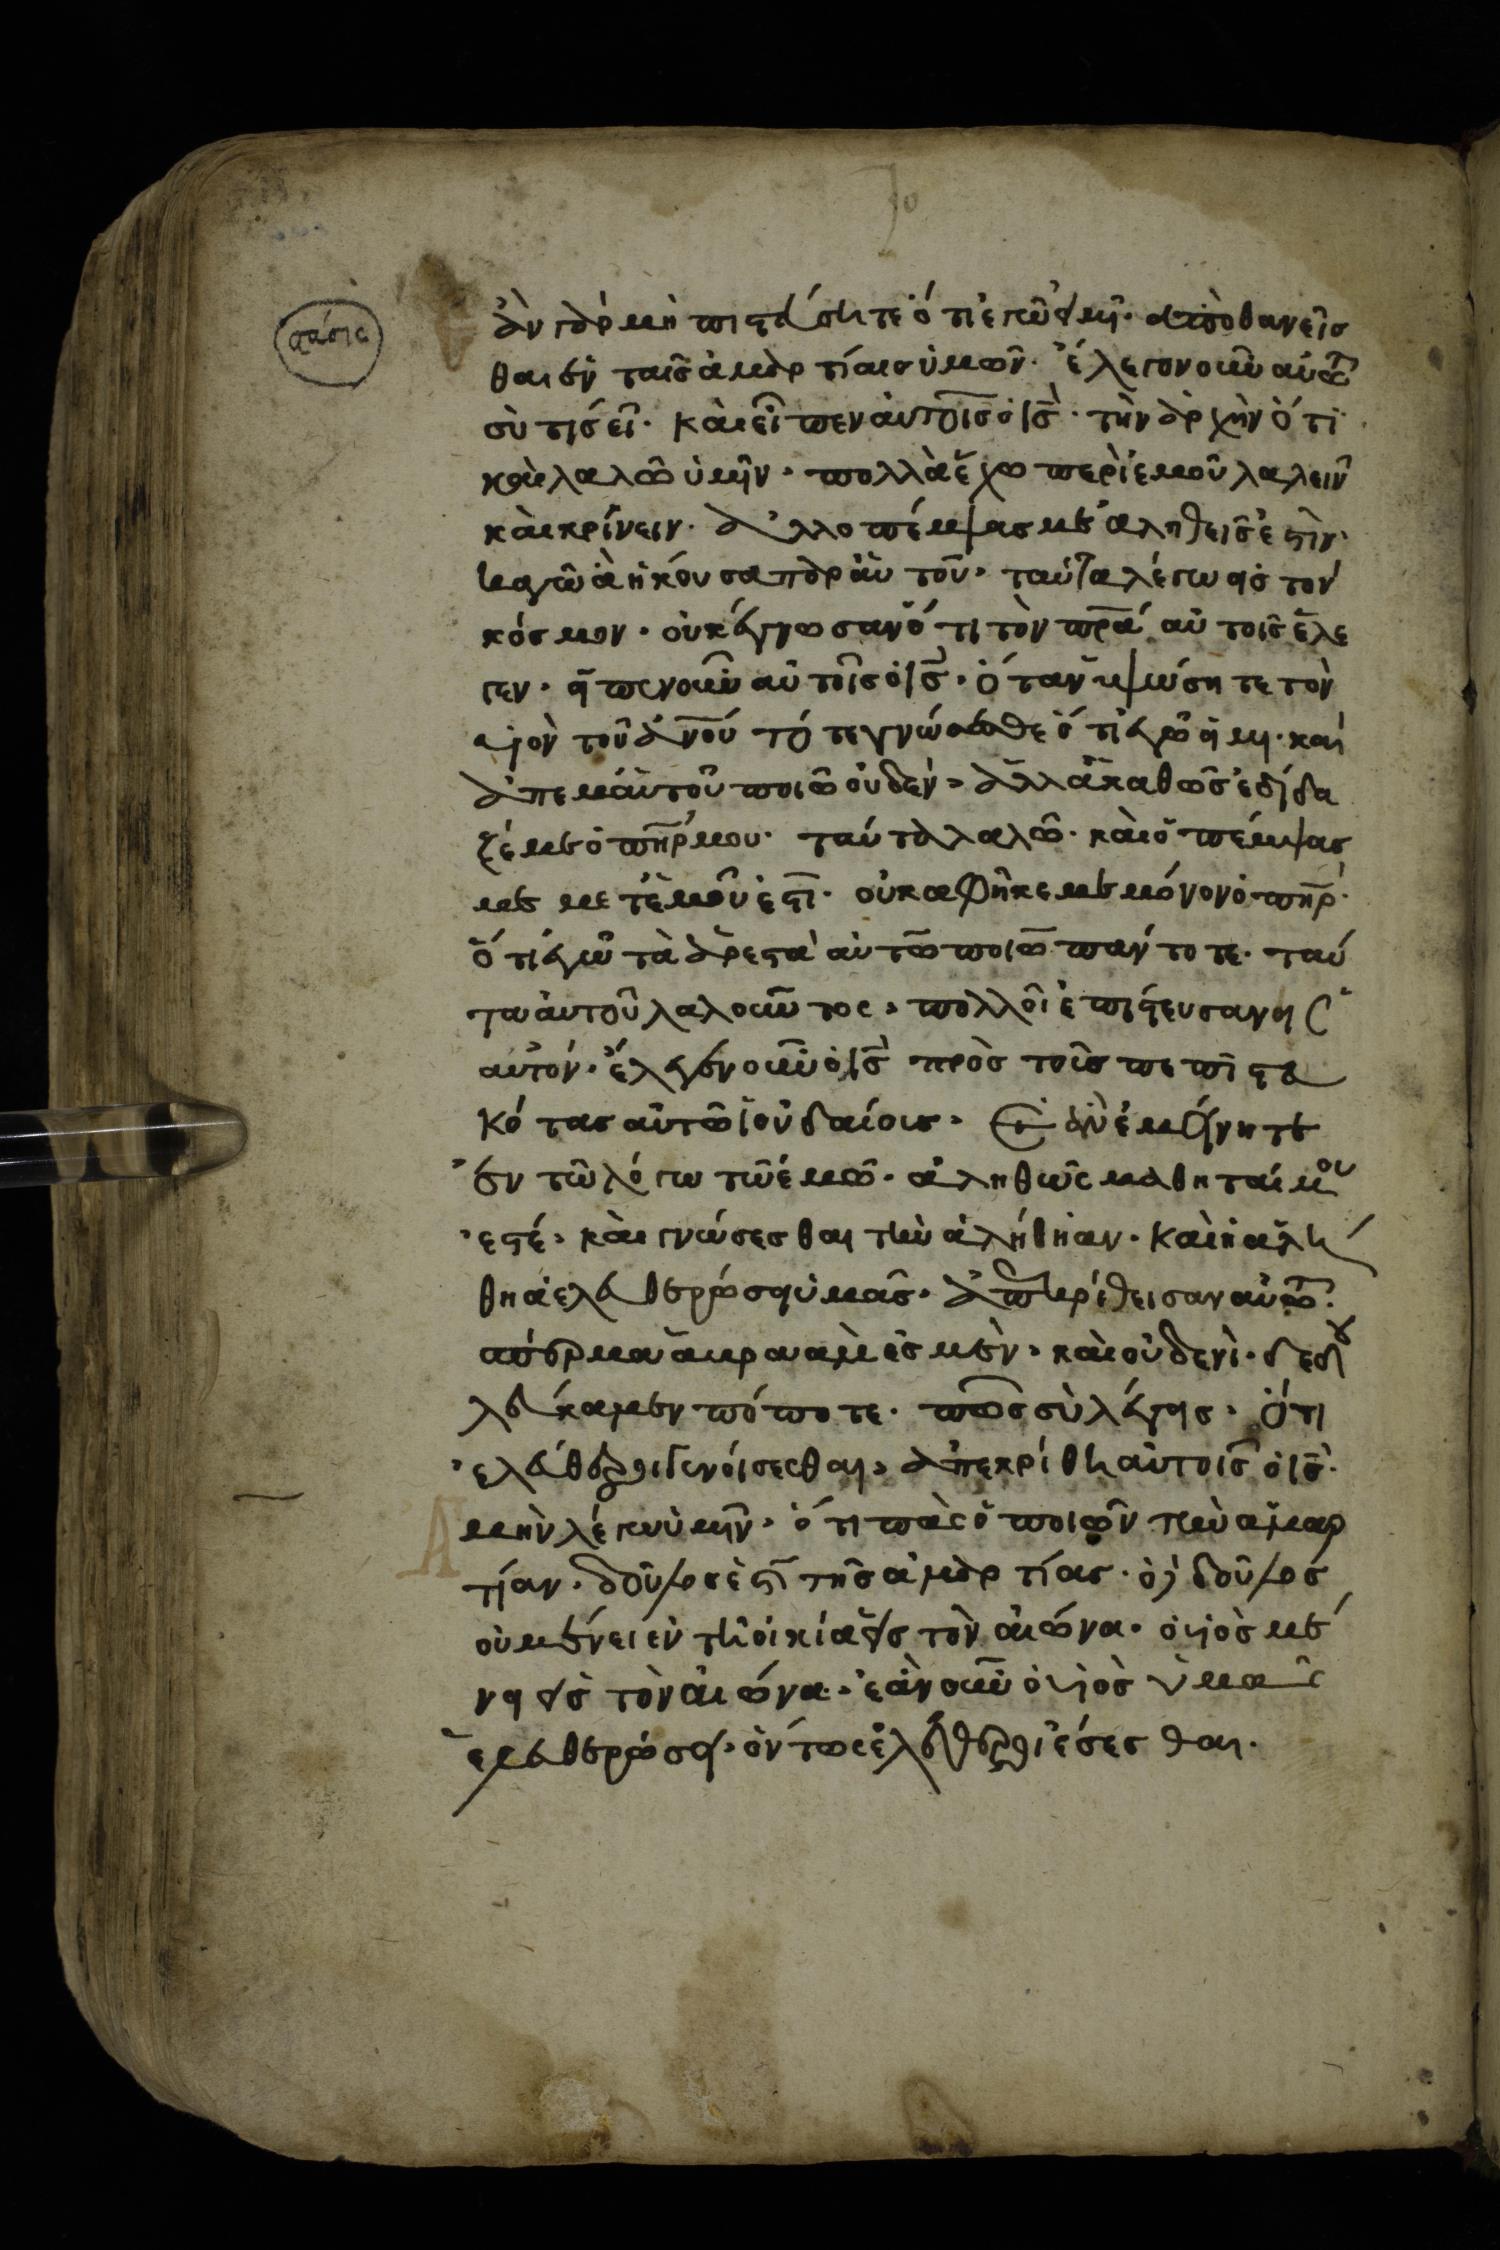 στάσις
ὰν γὰρ μὴ πιστεύσητε ὅτι ἐγώ εἰμι· ἀποθανεῖσ
θαι ἐν ταῖς ἁμαρτίαις ὑμῶν· ἔλεγον οὖν αὐτῶ
σὺ τίς εἶ· καὶ εἶπεν αὐτοῖς ὁ ις̅· τὴν ἀρχὴν ὅ τι
καὶ λαλῶ ὑμῖν· πολλὰ ἔχω περὶ ἐμοῦ λαλεῖν
καὶ κρίνειν· ἀλλ ο πέμψας με ἀληθεῖς ἐστὶν·
καγὼ ἃ ἤκουσα παρ αὐτοῦ· ταῦτα λέγω εἰς τὸν
κόσμον· οὐκ ἔγνωσαν ὅτι τὸν πρ̅α αὐτοῖς ἔλε
γεν· εἶπεν οὖν αὐτοῖς ὁ ις̅· ὅταν ὑψώσητε τὸν
υἱὸν τοῦ ἀν̅ου τότε γνώσεσθε ὅτι ἐγώ εἰμι· καὶ
ἀπ εμαυτοῦ ποιῶ οὐδέν· ἀλλὰ καθὼς ἐδίδα
ξέ με ὁ πη̅ρ μου· ταύτα λαλῶ· καὶ ὁ πέμψας
με μετ ἐμοῦ ἐστι· οὐκ αφῆκε με μόνον ὁ πη̅ρ·
ὅτι ἐγὼ τὰ ἀρεστὰ αὐτῶ ποιῶ πάντοτε· ταύ
τα αὐτοῦ λαλοῦντος· πολλοὶ ἐπίστευσαν εἰς
αὐτόν· ἔλεγεν οὖν ὁ ις̅ πρὸς τοῖς πεπιστευ
κότας αὐτῶ ἰουδαίοις· ἐὰν ἐμείνητε
ἐν τῶ λόγω τῶ ἐμῶ· ἀληθῶς μαθηταί μου
ἐστέ· καὶ γνώσεσθαι τὴν ἀλήθηαν· καὶ ἡ αλή
θηα ελευθερώσει ὑμᾶς· ἀπεκρίθεισαν αὐτῶ·
σπέρμα ἀβραάμ ἐσμὲν· καὶ οὐδενὶ· δεδου
λεύκαμεν πόποτε· πῶς σὺ λέγεις· ὅτι
ελεύθεροι γενοίσεσθαι· ἀπεκρίθη αὐτοῖς ὁ ις̅·
Α μὴν λέγω ὑμῖν· ὅτι πὰς ὁ ποιῶν τὴν αμαρ
τίαν· δοῦλος ἐστι τῆς ἁμαρτίας· ὁ δοῦλος
οὐ μένει ἐν τῆ οἰκία εἰς τὸν αἰώνα· ὁ υἱὸς μέ
νει εἰς τὸν αἰώνα· ἐὰν οὖν ὁ υἱὸς ὑμᾶς
ἐλευθερώσει· ὄντως ἐλεύθεροι ἔσεσθαι·